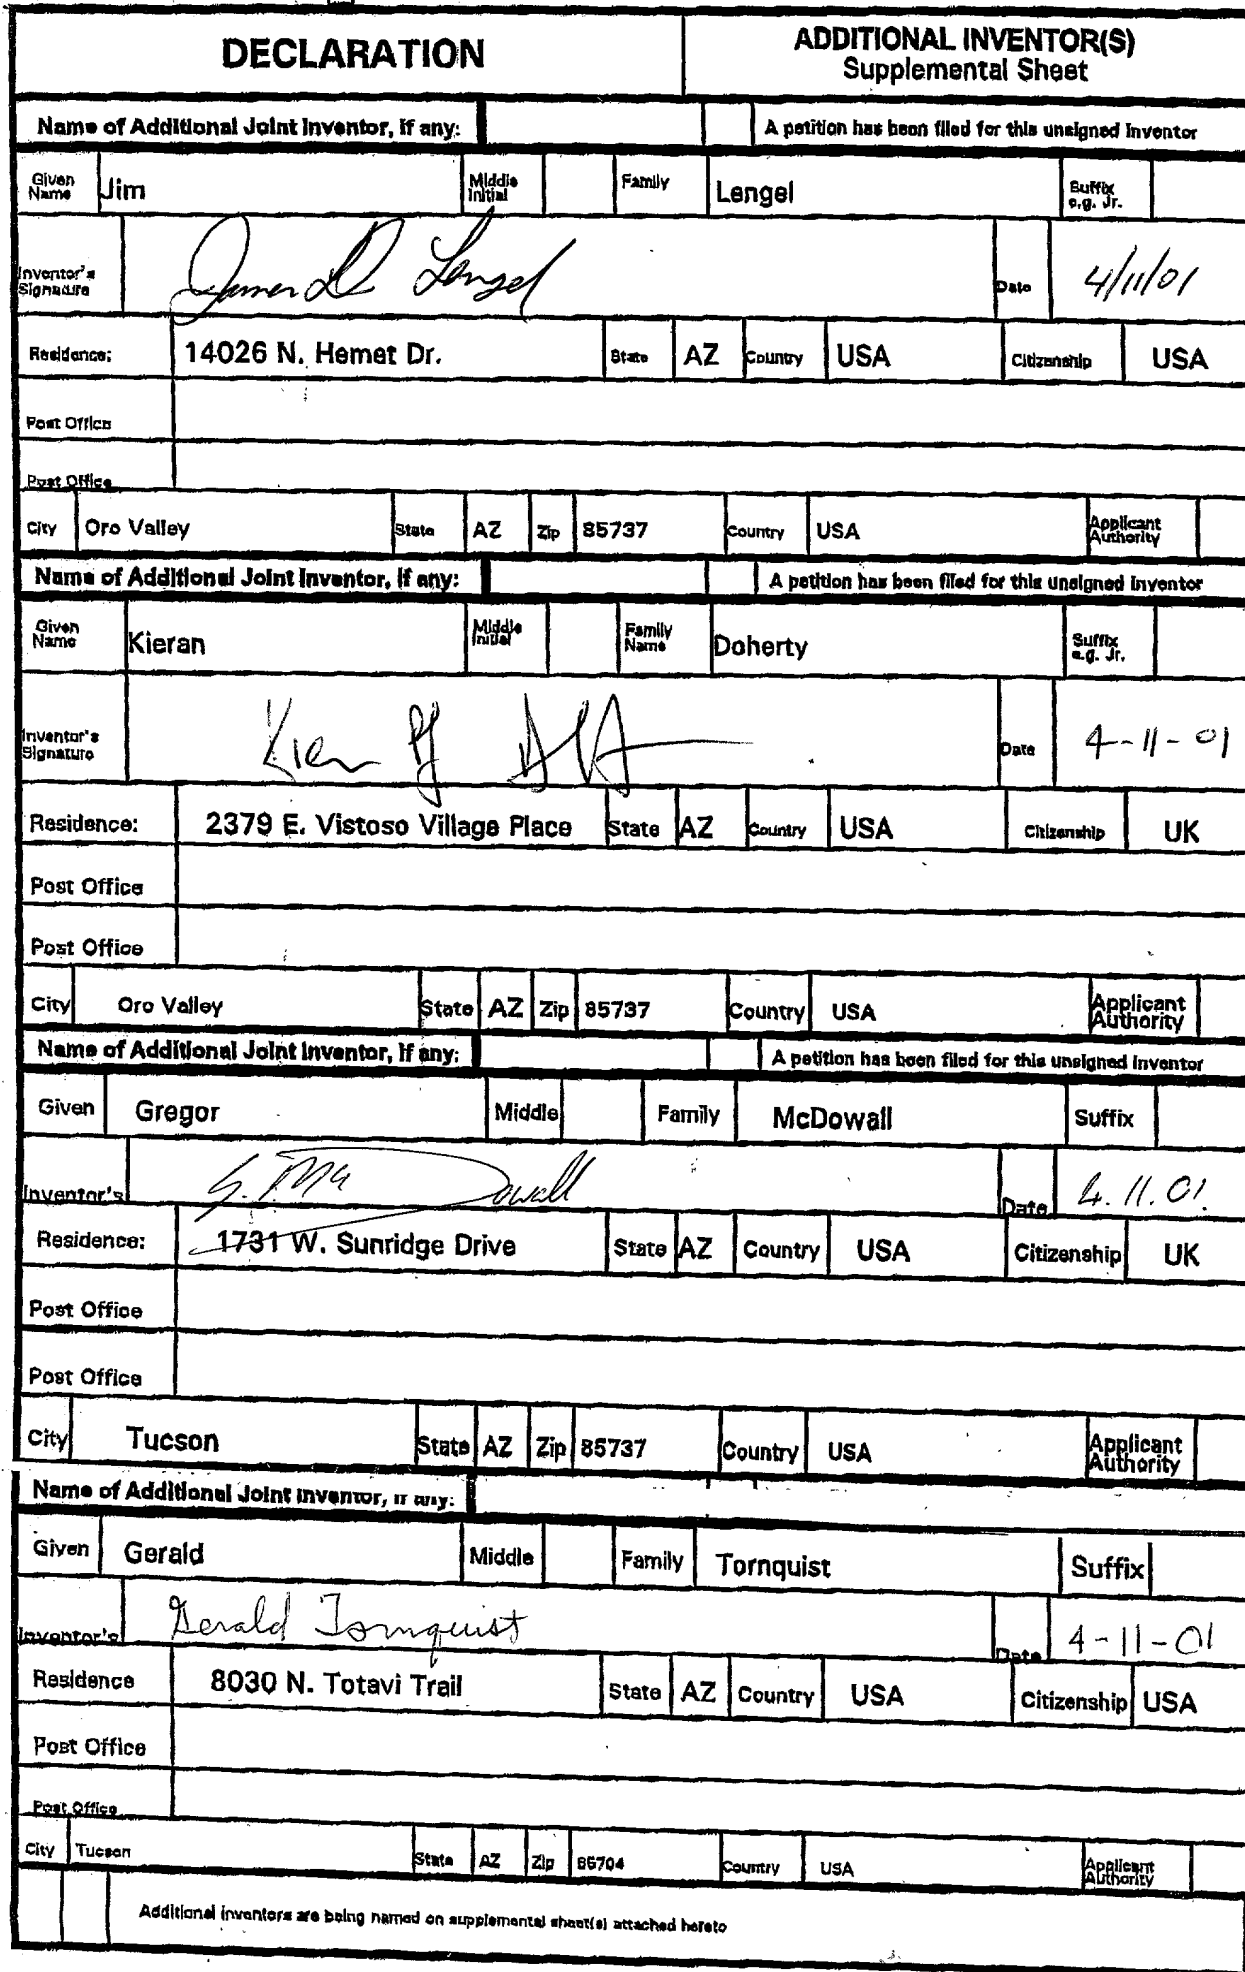 DECLARATION
ADDITIONAL INVENTOR(S)
Supplemental Sheet
Name of Additional Joint Inventor, if any: A petition has been filed for this unsigned inventor
Given Name Jim Middle Initial Family Lengel Suffix e.g. Jr.
Inventor's Signature James D Lengel Date 4/11/01
Residence: 14026 N. Hemet Dr. State AZ Country USA Citizenship USA
Post Office
Post Office
City Oro Valley State AZ Zip 85737 Country USA Applicant Authority
Name of Additional Joint Inventor, if any: A petition has been filed for this unsigned inventor
Given Name Kieran Middle Initial Family Name Doherty Suffix e.g. Jr.
Inventor's Signature Date 4-11-01
Residence: 2379 E. Vistoso Village Place State AZ Country USA Citizenship UK
Post Office
Post Office
City Oro Valley State AZ Zip 85737 Country USA Applicant Authority
Name of Additional Joint Inventor, if any: A petition has been filed for this unsigned inventor
Given Gregor Middle Family McDowall Suffix
Inventor's G. McDowall Date 4.11.01.
Residence: 1731 W. Sunridge Drive State AZ Country USA Citizenship UK
Post Office
Post Office
City Tucson State AZ Zip 85737 Country USA Applicant Authority
Name of Additional Joint Inventor, if any:
Given Gerald Middle Family Tornquist Suffix
Inventor's Gerald Tornquist Date 4-11-01
Residence 8030 N. Totavi Trail State AZ Country USA Citizenship USA
Post Office
Post Office
City Tucson State AZ Zip 85704 Country USA Applicant Authority
Additional inventors are being named on supplemental sheet(s) attached hereto